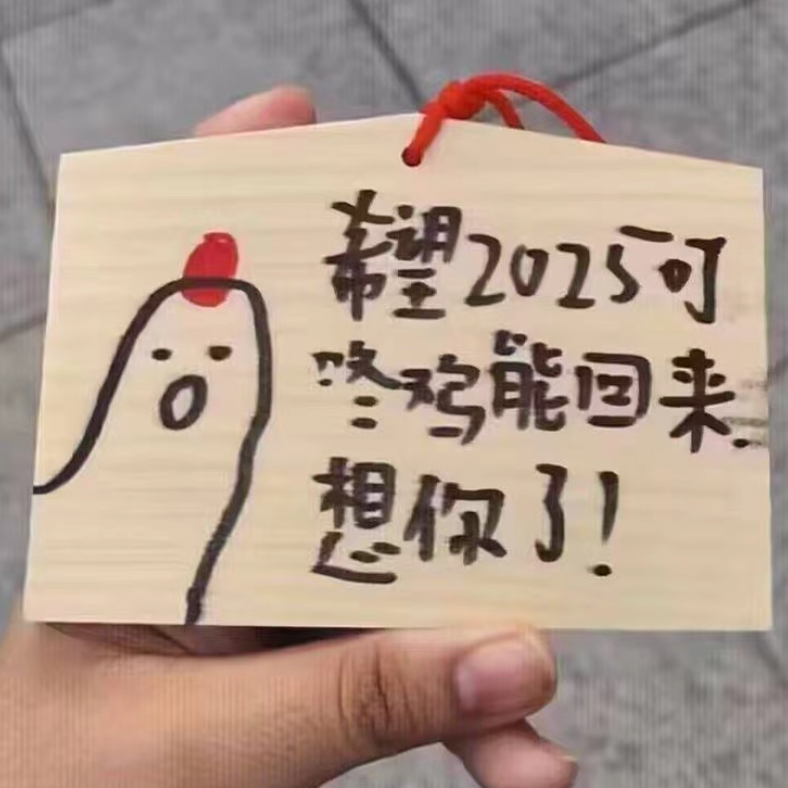 希望2025可
咚鸡能回来
想你了!